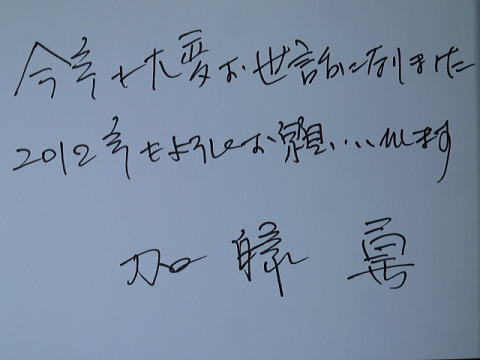 今年も大変お世話になりました
2012年もよろしくお願い...します
加藤 勇